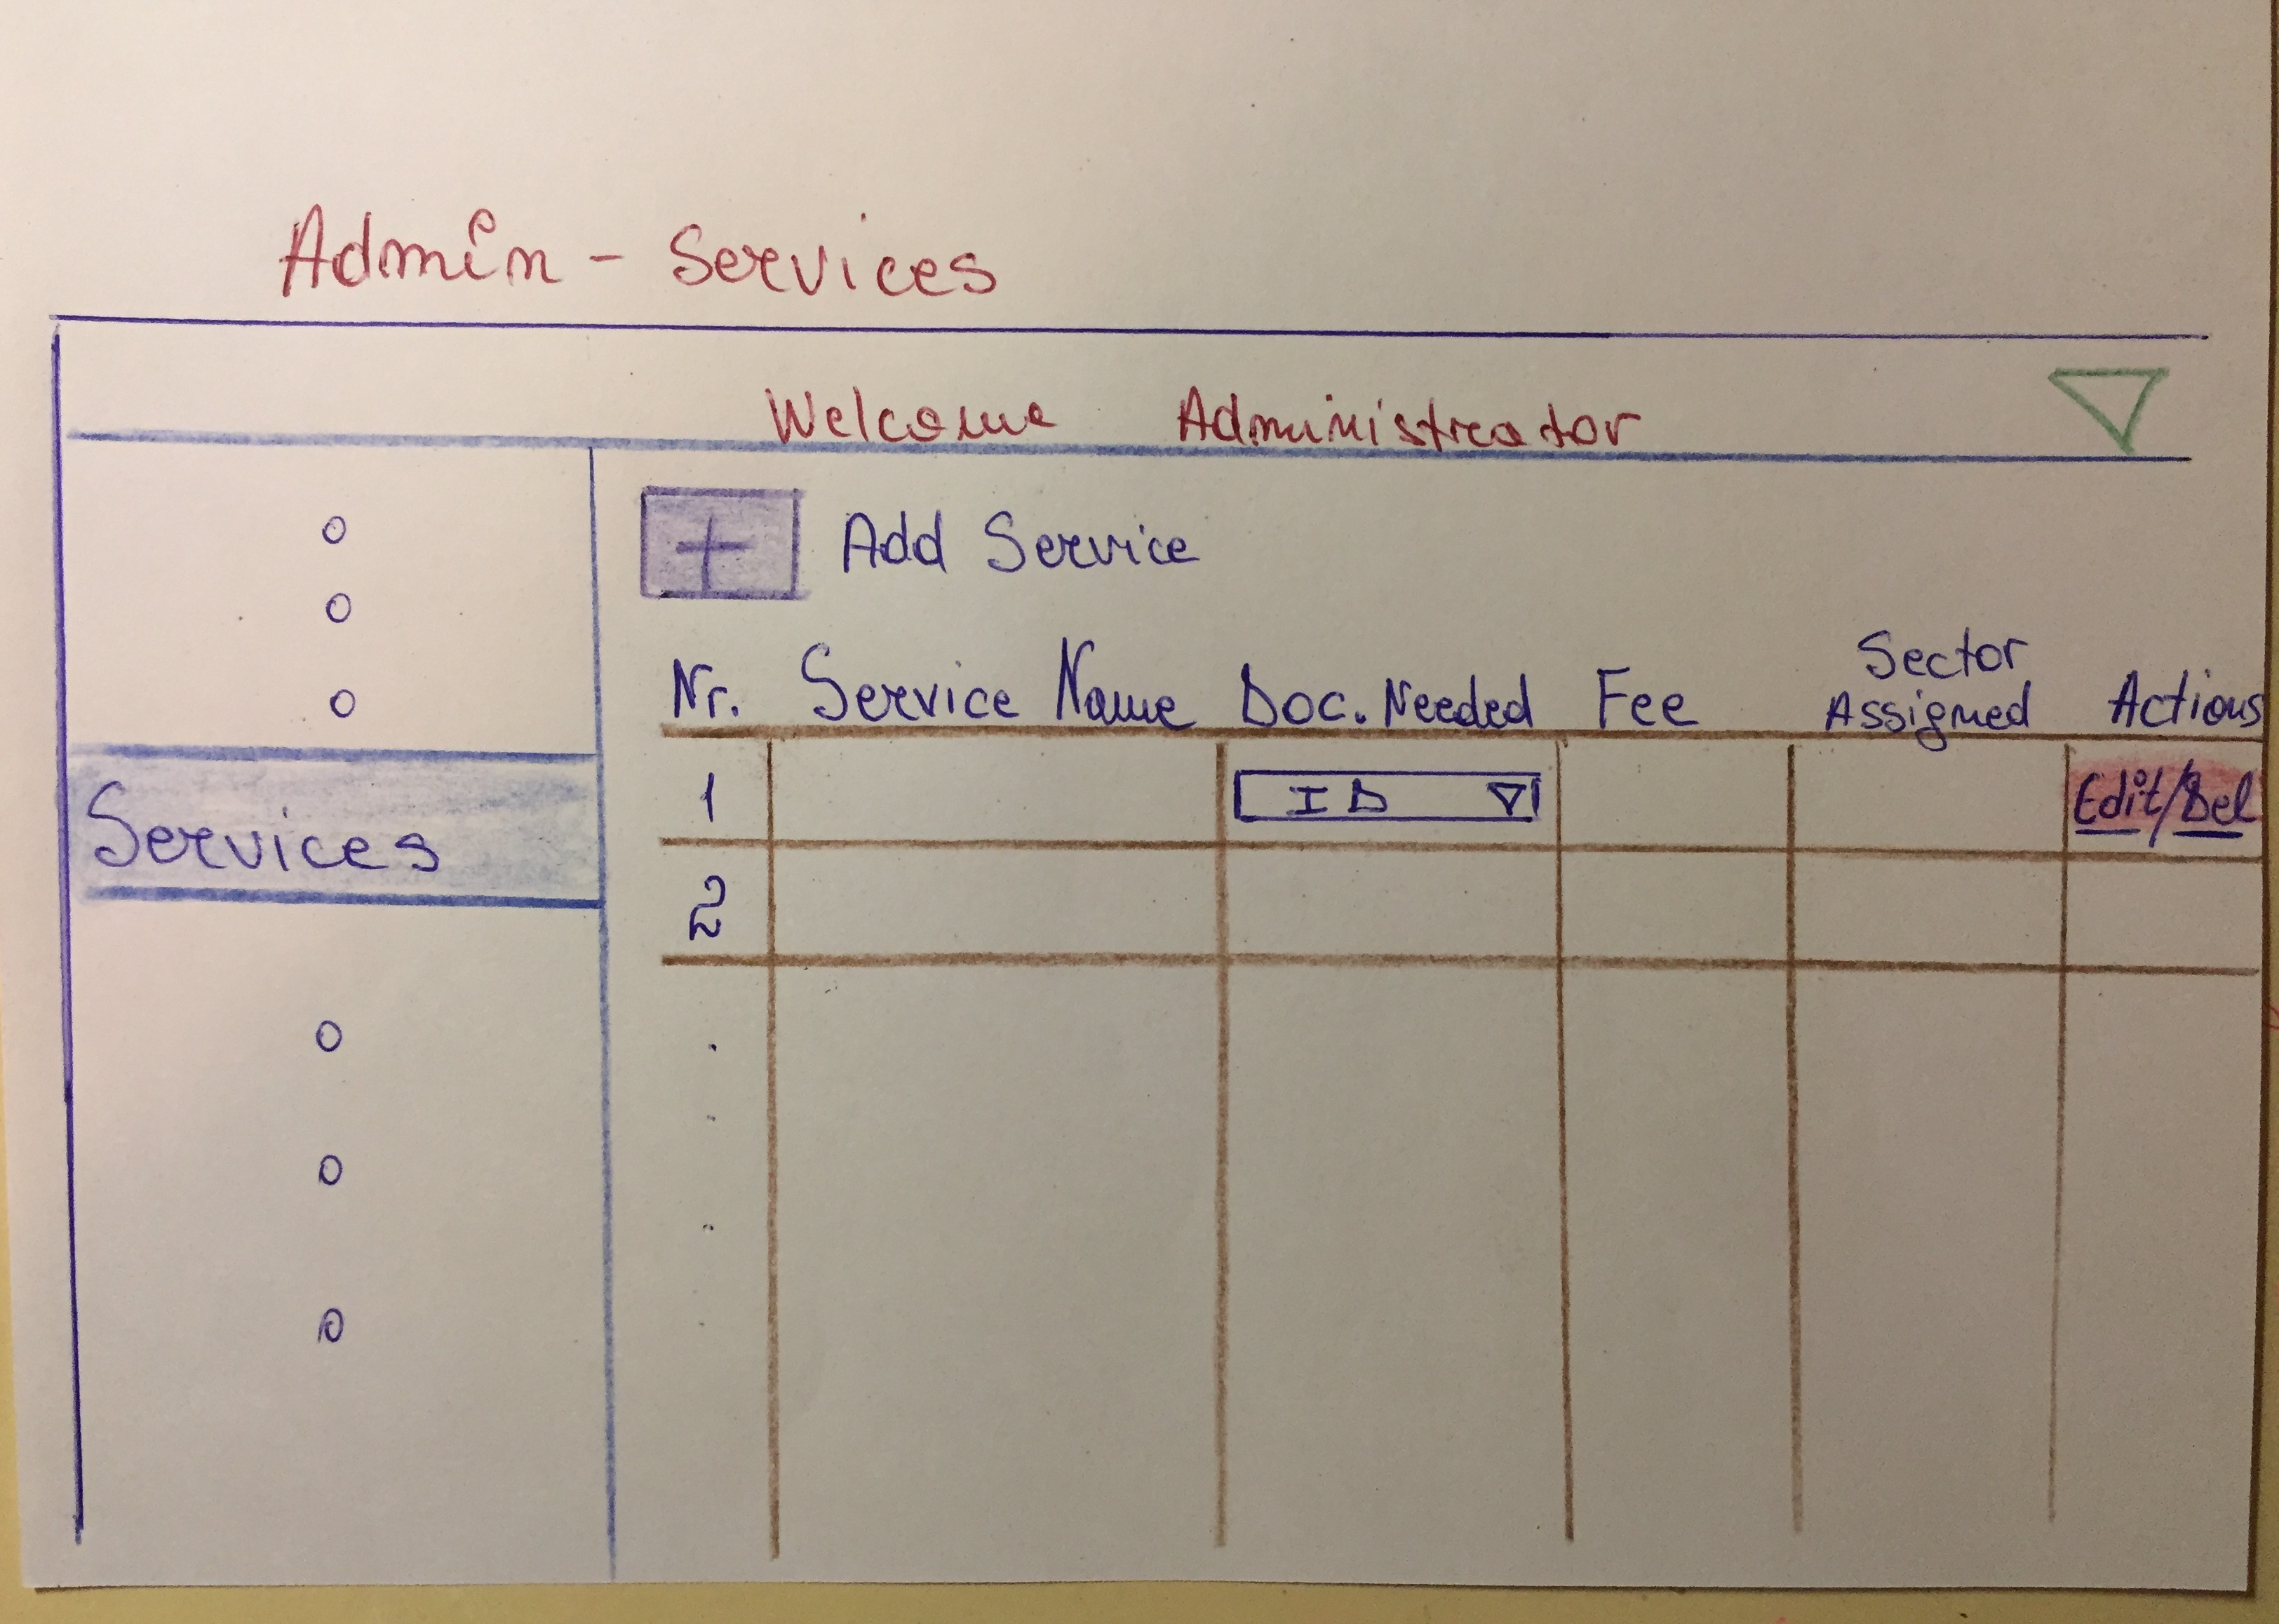 Admin - Services
Welcome Administrator
+ Add Service
Nr. Service Name Doc. Needed Fee Sector Assigned Actions
Services
1 ID Edit/Del
2